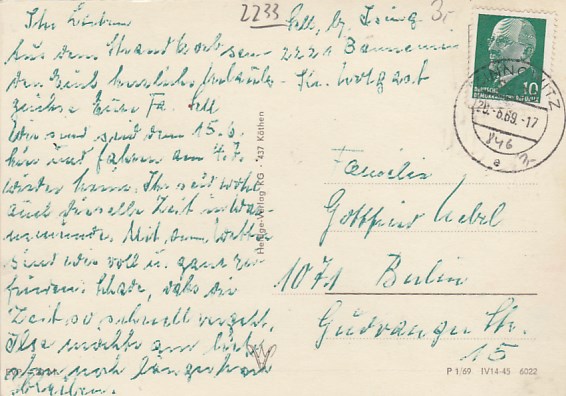 2233
3,-
Ihr Lieben
Aus dem Strandkorb sen-
den Euch herzliche Urlaubs-
grüße Eure Fa. Sell
Wir sind seit dem 15.6.
hier und fahren am 4.7.
wieder heim. Ihr seid wohl
auch dieselbe Zeit in War-
nemünde. Mit dem Wetter
sind wir voll u. ganz zu-
frieden. Schade, daß die
Zeit so schnell vergeht,
Ilse möchte am lieb-
sten noch länger hier
bleiben.
Sell, bz.
2221 Bannemin
Kr. Wolgast
10
ZINNOWITZ
-6.69.-17
a
Familie
Gottfried Nebel
1071 Berlin
Gudvanger Str.
15
Heldge-Verlag KG · 437 Köthen
P 1/69 IV14-45 6022